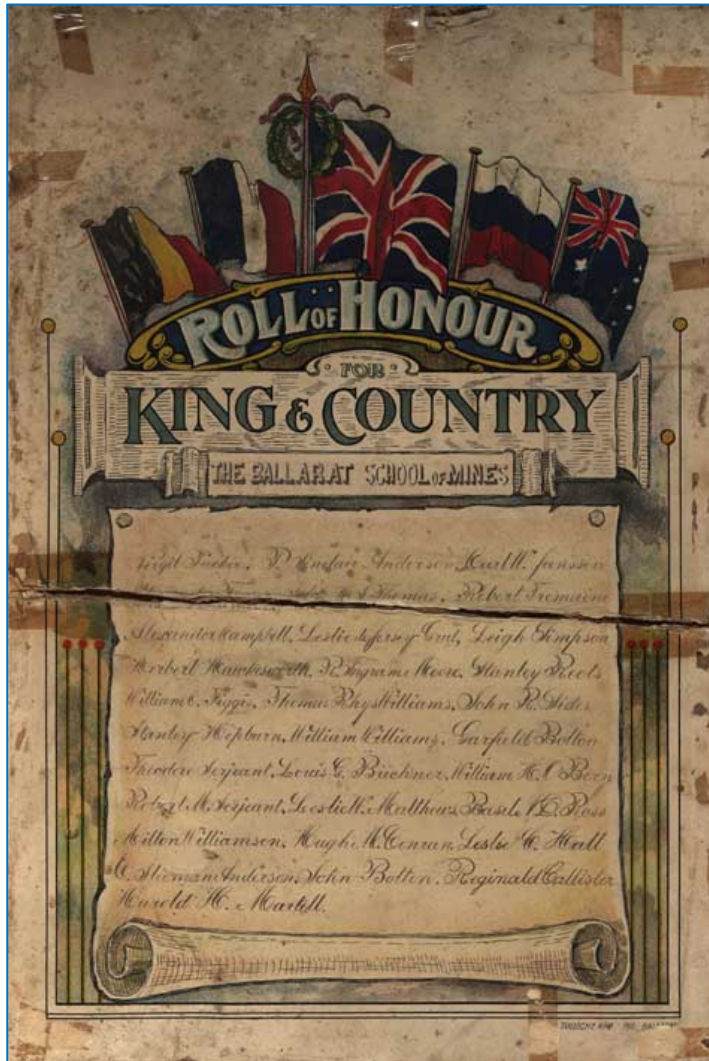 ROLL OF HONOUR
FOR
KING & COUNTRY
THE BALLARAT SCHOOL OF MINES
Anderson, W. Jansson
Thomas. Robert Tremaine
Alexander Campbell. Leslie Leigh Simpson
Herbert Hawkesworth. R. Ingrame Moore. Stanley Roots
William C. Figgis. Thomas Rhys Williams. John R. Sides
Stanley Hepburn. William Williams. Garfield Bolton
Theodore Serjeant. Louis G. Buchner. William H. Born
Robert M. Serjeant. Leslie W. Matthews. Basil Ross
Milton Williamson. Hugh M. Conran. Leslie Hall
Anderson. John Botten. Reginald Callister
Harold H. Martell.